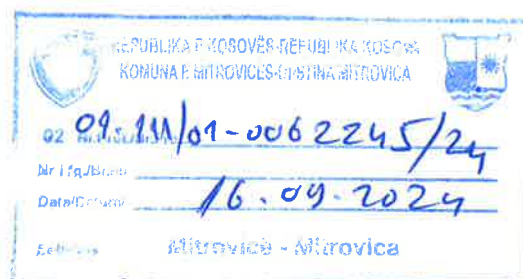 REPUBLIKA E KOSOVËS-REPUBLIKA KOSOVA
KOMUNA E MITROVICËS-OPŠTINA MITROVICA
02 01-111/01-0062245/24
Nr i fq./Broj
Data/Datum 16.09.2024
Mitrovicë - Mitrovica